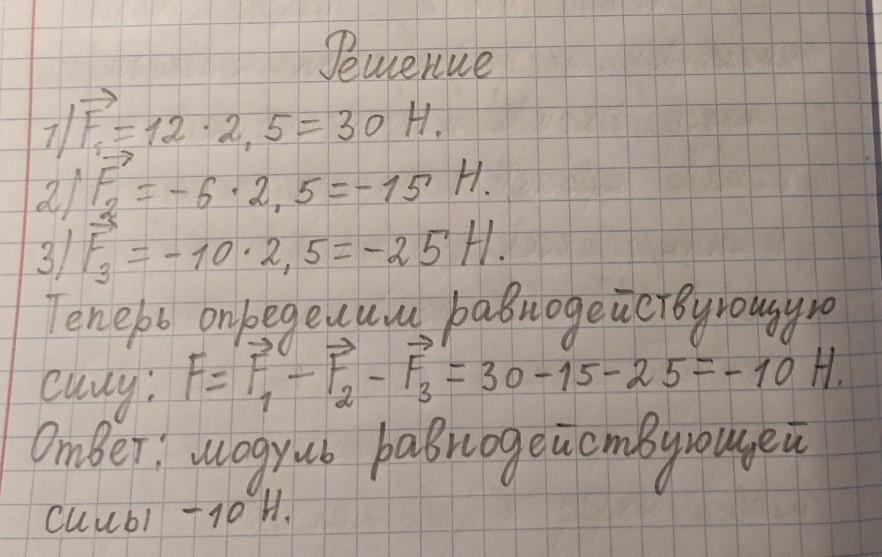 Решение
1) F⃗₁ = 12 · 2,5 = 30 Н.
2) F⃗₂ = -6 · 2,5 = -15 Н.
3) F⃗₃ = -10 · 2,5 = -25 Н.
Теперь определим равнодействующую
силу: F = F⃗₁ - F⃗₂ - F⃗₃ = 30 - 15 - 25 = -10 Н.
Ответ: модуль равнодействующей
силы -10 Н.